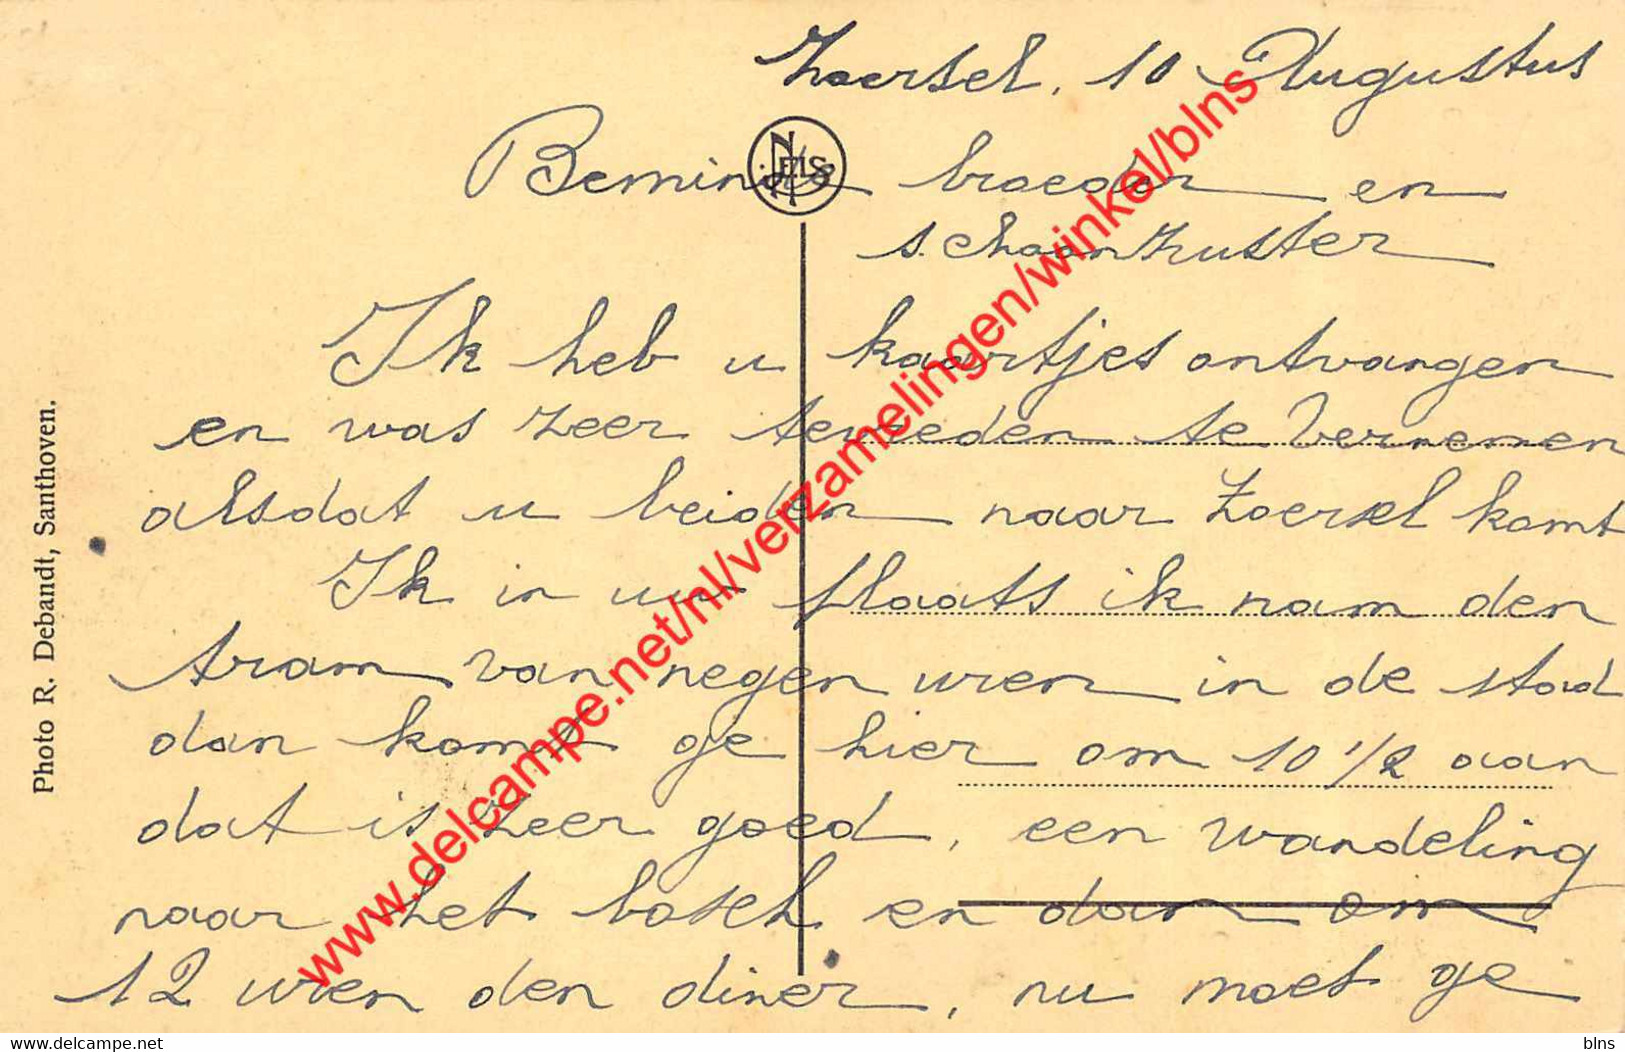 Zoersel, 10 Augustus
Beminde broeder en
schoonzuster
Ik heb u kaartjes ontvangen
en was zeer tevreden te vernemen
alsdat u beiden naar Zoersel komt
Ik in uw plaats ik nam den
tram van negen uren in de stad
dan komt ge hier om 10 1/2 aan
dat is zeer goed, een wandeling
naar het bosch en dan om
12 uren den diner, nu moet ge
NELS
Photo R. Debandt, Santhoven.
www.delcampe.net/nl/verzamelingen/winkel/blns
www.delcampe.net
blns